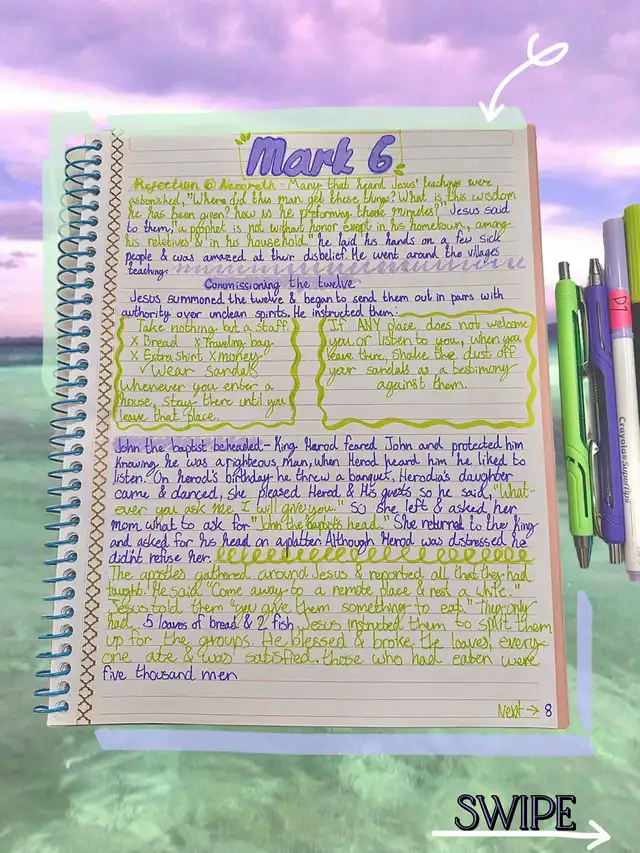 Mark 6
Rejection @ Nazareth - Many that heard Jesus' teachings were
astonished, "Where did this man get these things? What is this wisdom
he has been given? how is he preforming these miracles?" Jesus said
to them, "a prophet is not without honor except in his hometown, among
his relatives & in his household." he laid his hands on a few sick
people & was amazed at their disbelief. He went around the villages
teaching.
Commissioning the twelve
Jesus summoned the twelve & began to send them out in pairs with
authority over unclean spirits. He instructed them:
Take nothing but a staff.
x Bread x Traveling bag
x Extra shirt x money
✓ Wear sandals
Whenever you enter a
house, stay there until you
leave that place.
If ANY place does not welcome
you or listen to you, when you
leave there, shake the dust off
your sandals as a testimony
against them.
John the baptist beheaded - King Herod feared John and protected him
knowing he was a righteous man, when Herod heard him he liked to
listen. On herod's birthday he threw a banquet, Herodia's daughter
came & danced, she pleased Herod & His guests so he said, "What-
ever you ask me I will give you." So she left & asked her
mom what to ask for "John the baptist's head." She returned to the King
and asked for his head on a platter. Although Herod was distressed he
didn't refuse her.
The apostles gathered around Jesus & reported all that they had
taught. He said, "Come away to a remote place & rest a while."
Jesus told them "you give them something to eat," They only
had 5 loaves of bread & 2 fish. Jesus instructed them to split them
up for the groups. He blessed & broke the loaves, every-
one ate & was satisfied. those who had eaten were
five thousand men
Next → 8
Crayola SuperTips
SWIPE